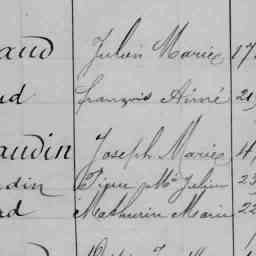 aud Julien Marie 17
ud françois Aimé 21
audin Joseph Marie 4
din Pierre Mie Julien 23
ud Mathurin Marie 22